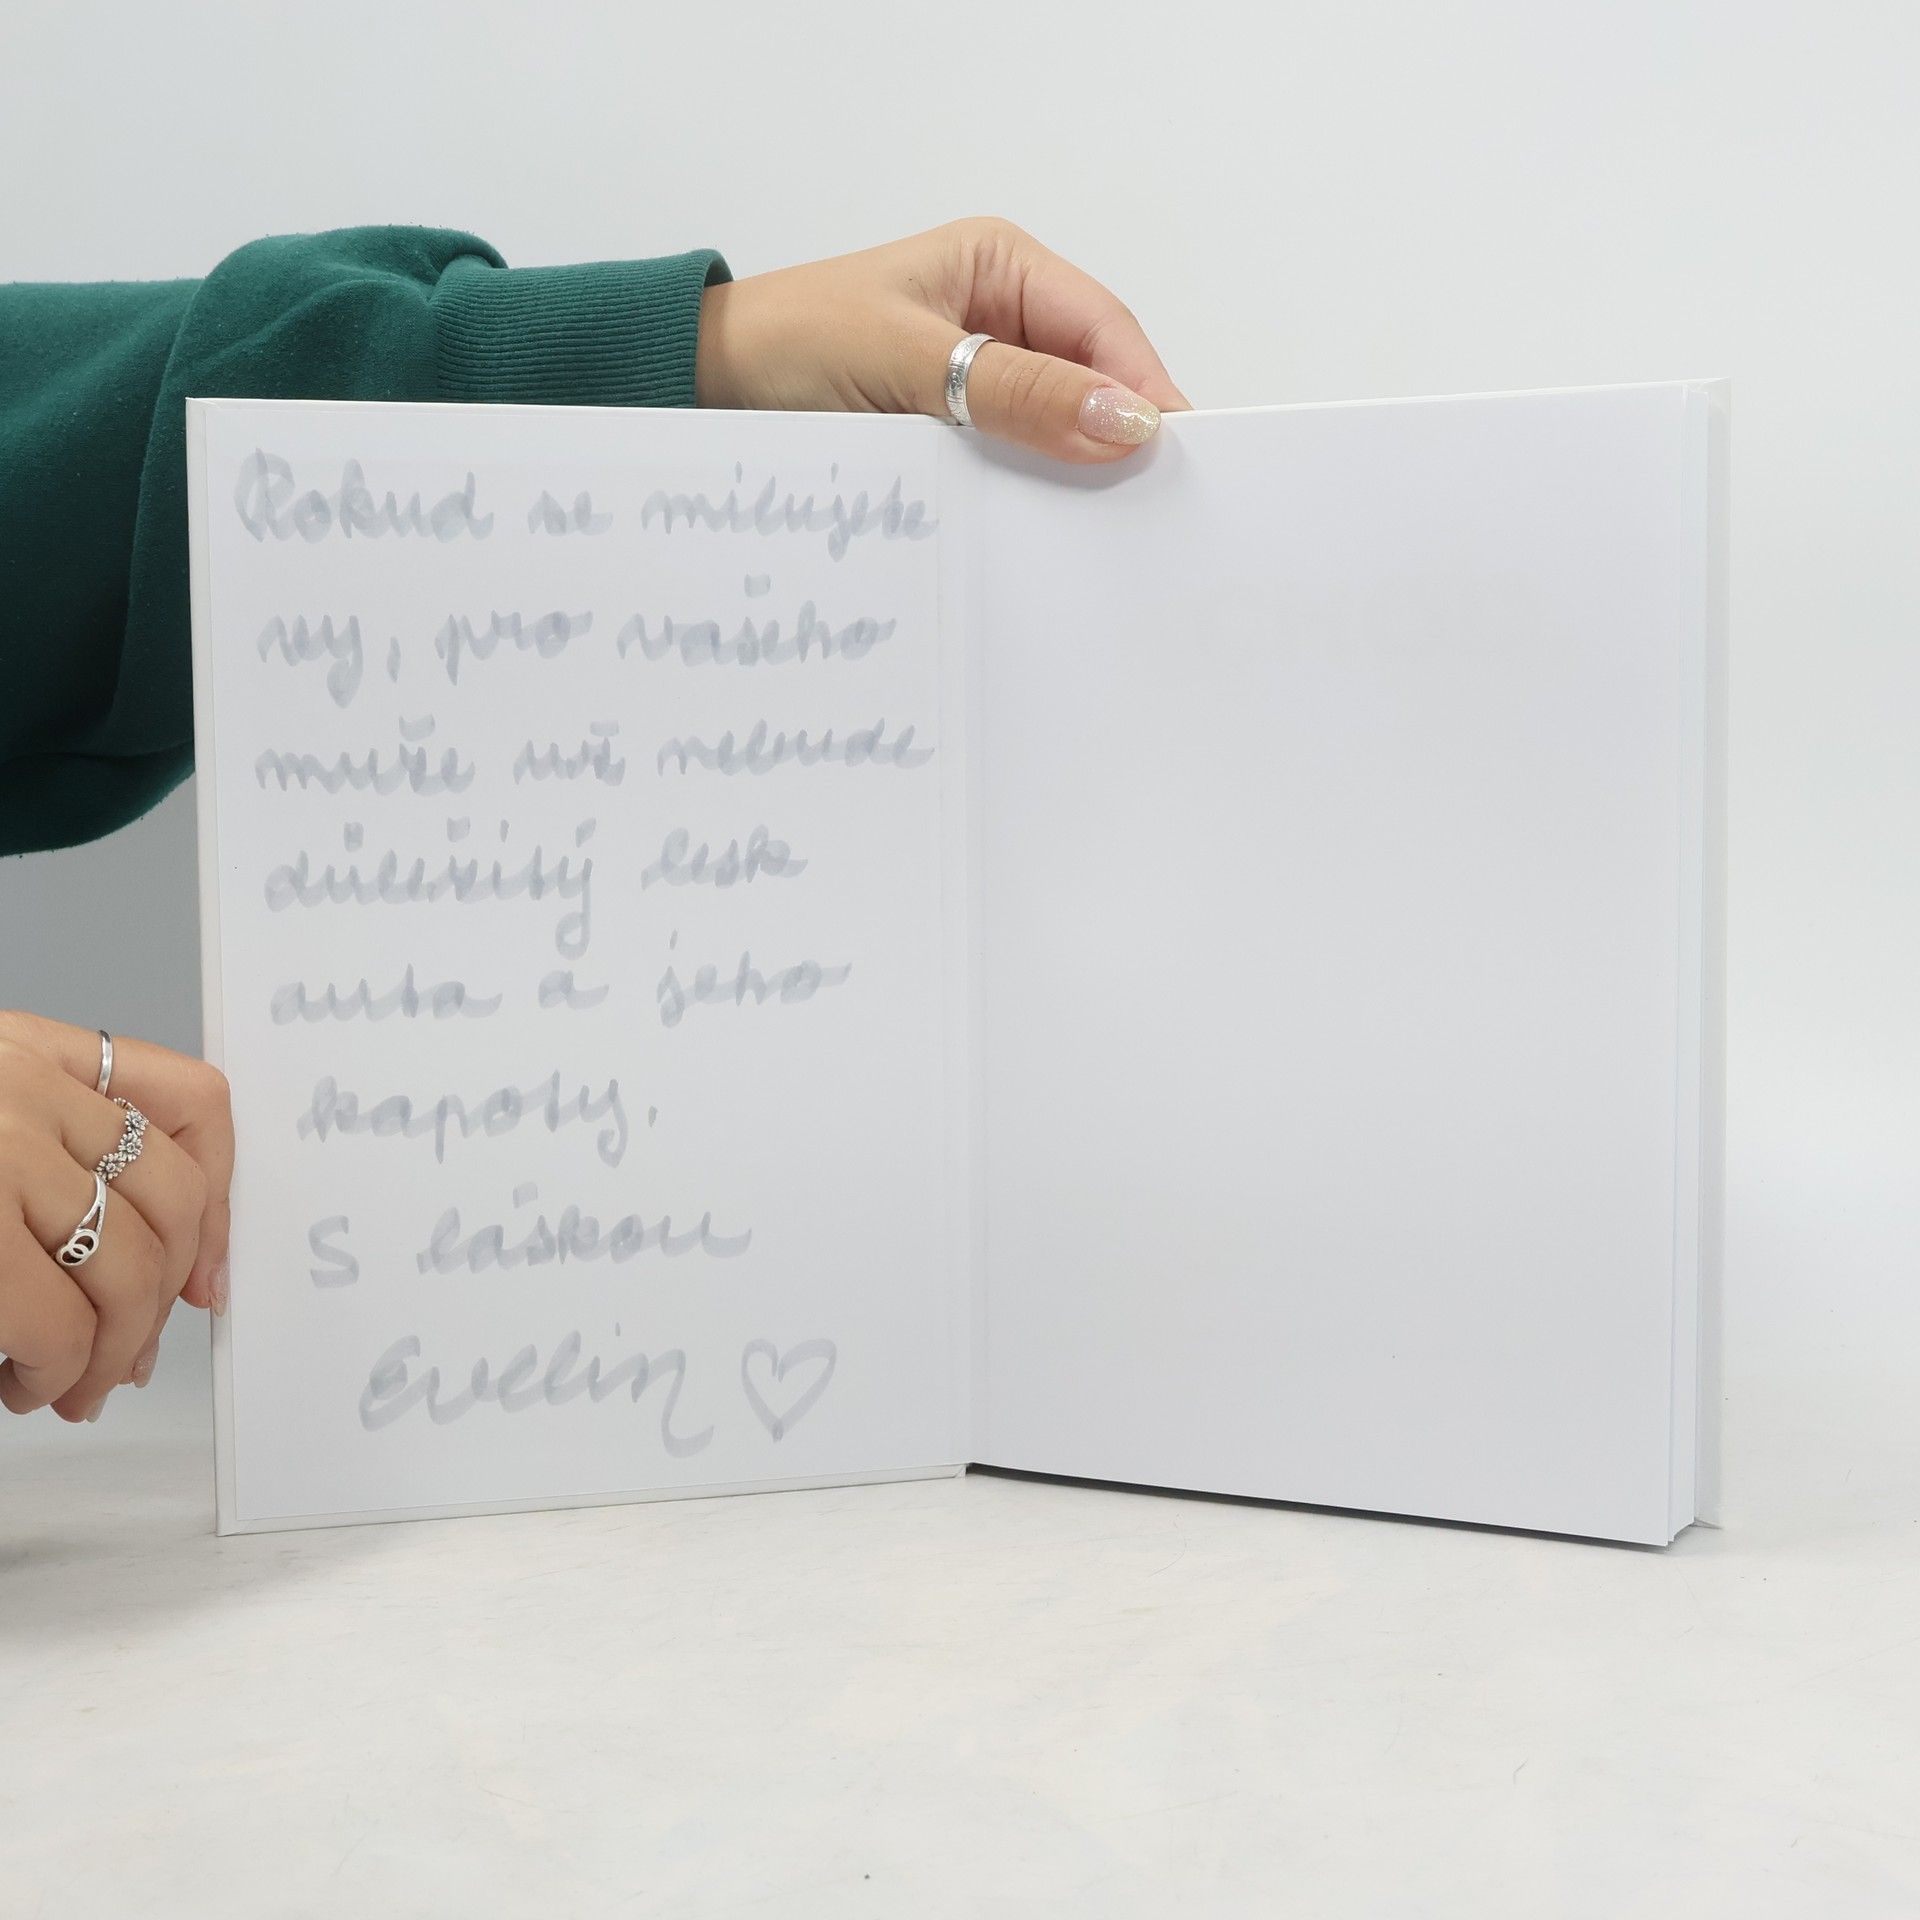 Pokud se milujete
vy, pro vašeho
muže už nebude
důležitý lesk
auta a jeho
kapoty.
S láskou
Evelin